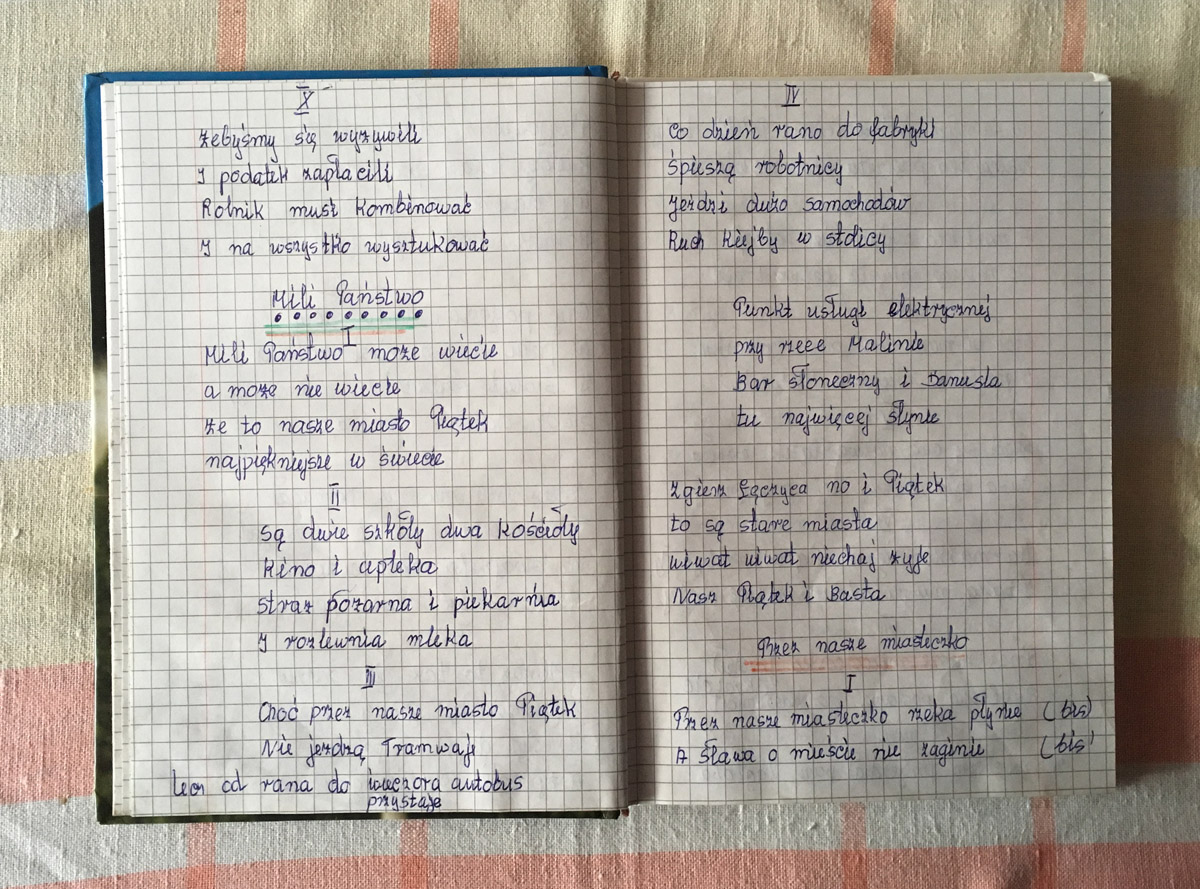 X
żebyśmy się wyzywili
I podatk zapłacili
Rolnik musi kombinować
I na wszystko wysztukować
Mili Państwo
I
Mili Państwo może wiecie
a może nie wiecie
że to nasze miasto Piątek
najpiękniejsze w świecie
II
Są dwie szkoły dwa kościoły
kino i apteka
straż pożarna i piekarnia
I rozlewnia mleka
III
Choć przez nasze miasto Piątek
Nie jeżdżą Tramwaje
Lecz od rana do wieczora autobus
przystaje
IV
Co dzień rano do fabryki
śpieszą robotnicy
Jeździ dużo samochodów
Ruch kiejby w stolicy
Punkt usługi elektrycznej
przy rzece Malinie
Bar słoneczny i Danusia
tu najwięcej słynie
Zgierz Łączyca no i Piątek
to są stare miasta
wiwat wiwat niechaj żyje
Nasz Piątek i Basta
Przez nasze miasteczko
I
Przez nasze miasteczko rzeka płynie (bis)
A Sława o mieście nie zaginie (bis)